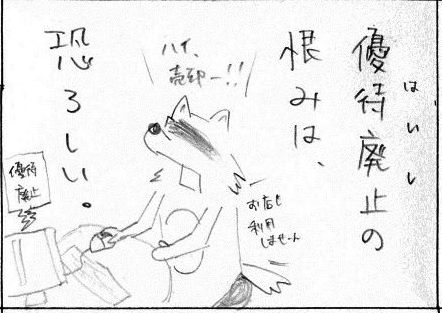 優待廃止の
はいし
恨みは、
恐ろしい。
ハイ、
売却ー!!
優待
廃止
お店も
利用
しませーん